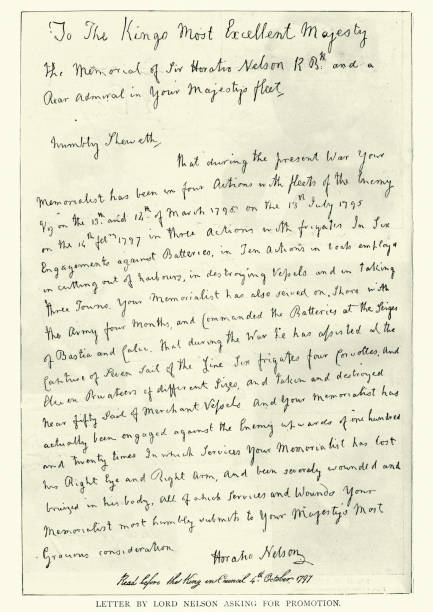 To The Kings Most Excellent Majesty
The Memorial of Sir Horatio Nelson K Bt. and a
Rear Admiral in Your Majestys fleet,
Humbly Sheweth,
That during the present War Your
Memorialist has been in four Actions with fleets of the Enemy
Viz on the 13th. and 14th of March 1795 on the 13th July 1795
on the 14th febry 1797 in three Actions with frigates In Six
Engagements against Batteries, in Ten Actions in boats employd
in cutting out of harbours, in destroying Vessels and in taking
three Towns. Your Memorialist has also served on Shore with
the Army four Months, and Commanded the Batteries at the Sieges
of Bastia and Calvi. That during the War he has assisted at the
Capture of Seven Sail of the Line Six frigates four Corvettes, and
Eleven Privateers of different Sizes, and taken and destroyed
near fifty Sail of Merchant Vessels And Your Memorialist has
actually been engaged against the Enemy upwards of one hundred
and Twenty times In which Services Your Memorialist has lost
his Right Eye and Right Arm, And been severely wounded and
bruized in his body, All of which Services and Wounds Your
Memorialist most humbly submits to Your Majestys Most
Gracious consideration
Horatio Nelson
Read before the King in Council 4th October 1797
LETTER BY LORD NELSON ASKING FOR PROMOTION.